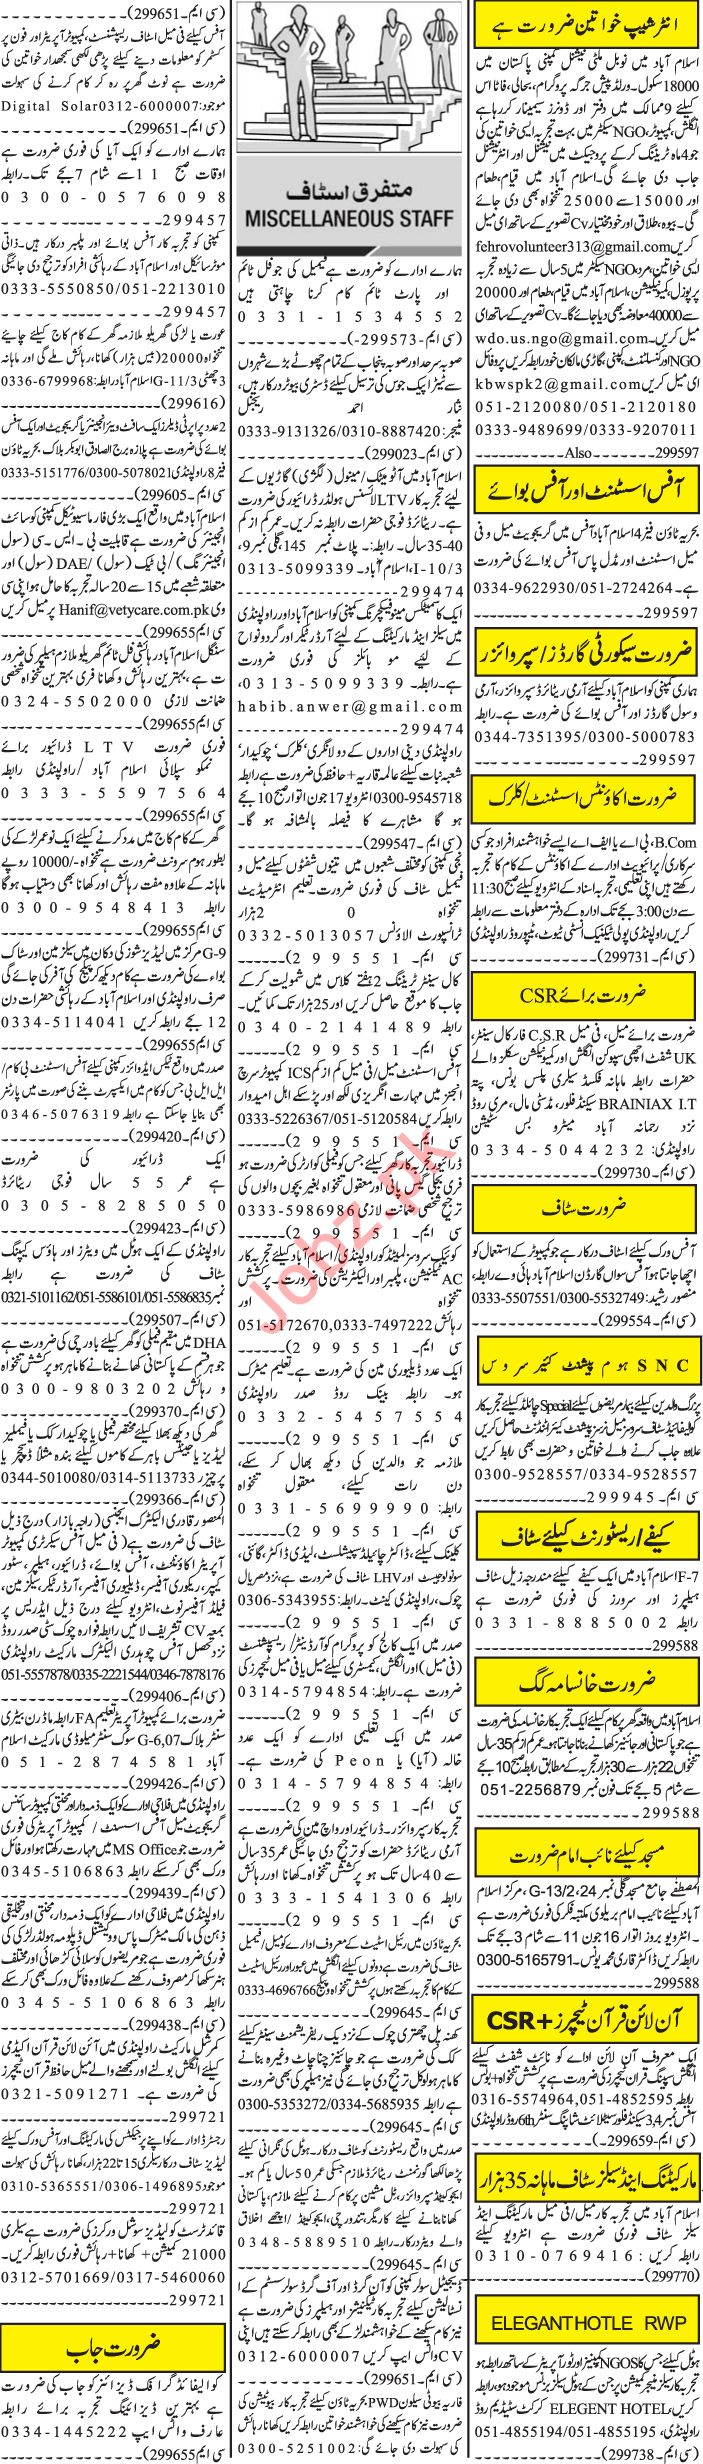 انٹرشیپ خواتین ضرورت ہے
اسلام آباد میں نوبل ملٹی نیشنل کمپنی پاکستان میں
18000 سکول۔ ورلڈ پیش جرگہ پروگرام، بحالی، فاٹا اس
کیلئے 9 ممالک میں دفتر اور ڈونرز سیمینار کررہا ہے
انگلش، کمپیوٹر، NGO سیکٹر میں بہت تجربہ ایسی خواتین کی
جو 4 ماہ ٹریننگ کرکے پروجیکٹ میں نیشنل اور انٹرنیشنل
جاب دی جائے گی۔ اسلام آباد میں قیام، طعام
اور 15000 سے 25000 تنخواہ بھی دی جائے
گی۔ بیوہ، طلاق اور خودمختیار Cv تصویر کے ساتھ ای میل
کریں fehrovolunteer313@gmail.com
ایسی خواتین، مرد، NGO سیکٹر میں 5 سال سے زیادہ تجربہ
پرپوزل، کمیونیکیشن، اسلام آباد میں قیام، طعام اور 20000
سے 40000 معاوضہ بھی دیا جائے گا۔ Cv تصویر کے ساتھ ای
میل کریں۔ wdo.us.ngo@gmail.com
NGO اور کنسلٹنٹ، کمپنی، گاڑی مالکان خود رابطہ کریں پروفائل
ای میل کریں kbwspk2@gmail.com
051-2120080/051-2120180
0333-9489699/0333-9207011
299597 Also
آفس اسسٹنٹ اور آفس بوائے
بحریہ ٹاؤن فیز 4 اسلام آباد آفس میں گریجویٹ میل و فی
میل اسسٹنٹ اور مڈل پاس آفس بوائے کی ضرورت
ہے۔ 0334-9622930/051-2724264
299597
ضرورت سیکورٹی گارڈز/سپروائزر
ہماری کمپنی کو اسلام آباد کیلئے آرمی ریٹائرڈ سپروائزر، آرمی
و سول گارڈز اور آفس بوائے کی ضرورت ہے۔ رابطہ
0344-7351395/0300-5000783
299597
ضرورت اکاؤنٹس اسسٹنٹ/کلرک
B.Com، بی اے یا ایف اے ایسے خواہشمند افراد جو کسی
سرکاری/پرائیویٹ ادارے کے اکاؤنٹس کے کام کا تجربہ
رکھتے ہیں اپنی تعلیمی، تجربہ اسناد کے انٹرویو کیلئے صبح 11:30
سے دن 3:00 بجے تک ادارہ کے دفتر معلومات سے رابطہ
کریں۔ راولپنڈی پولی ٹیکنیک انسٹی ٹیوٹ، ٹیپو روڈ راولپنڈی
(سی ایم۔ 299731)
ضرورت برائے CSR
ضرورت برائے میل، فی میل C.S.R فار کال سینٹر،
UK شفٹ اچھی سپوکن انگلش اور کمیونیکیشن سکلز والے
حضرات رابطہ ماہانہ فکسڈ سیلری پلس بونس، پتہ
BRAINIAX I.T سیکنڈ فلور، مدنی مال، مری روڈ
نزد رحمانہ آباد میٹرو بس سٹیشن
راولپنڈی: 0334-5044232
(سی ایم۔ 299730)
ضرورت سٹاف
آفس ورک کیلئے اسٹاف درکار ہے جو کمپیوٹر کے استعمال کو
اچھا جانتا ہو آفس سواں گارڈن اسلام آباد ہائی وے رابطہ،
منصور رشید: 0333-5507551/0300-5532749
(سی ایم۔ 299554)
SNC ہوم پیشنٹ کیئر سروس
بزرگ والدین کیلئے بیمار مریضوں کیلئے Special چائلڈ کیلئے تجربہ کار
کوالیفائیڈ سٹاف سروسز میل نرسز پیشنٹ کیئر اٹنڈنٹ حاصل کریں
علاوہ جاب کرنے والے خواتین و حضرات بھی رابطہ کریں
0300-9528557/0334-9528557
سی ایم۔ 299945
کیفے/ریسٹورنٹ کیلئے سٹاف
F-7 اسلام آباد میں ایک کیفے کیلئے مندرجہ زیل سٹاف
ہیلپرز اور سرورز کی فوری ضرورت ہے
رابطہ 0331-8885002
299588
ضرورت خانسامہ کُک
اسلام آباد میں واقعہ گھر پر کام کیلئے ایک تجربہ کار خانسامہ کی ضرورت
ہے جو پاکستانی اور چائنیز کھانے بنانا جانتا ہو۔ عمر کم از کم 35 سال
تنخواں 22 ہزار سے 30 ہزار تجربہ کے مطابق رابطہ صبح 10 بجے
سے شام 5 بجے تک فون نمبر 051-2256879
299588
مسجد کیلئے نائب امام ضرورت
المصطفے جامع مسجد گلی نمبر 24، G-13/2، مرکز اسلام
آباد کیلئے نائب امام بریلوی مکتبہ فکر کی فوری ضرورت ہے
۔ انٹرویو بروز اتوار 16 جون 11 سے شام 3 بجے تک
رابطہ کریں ڈاکٹر قاری محمد یونس۔ 0300-5165791
299588
آن لائن قرآن ٹیچرز + CSR
ایک معروف آن لائن ادارے کو نائٹ شفٹ کیلئے
انگلش سپیکنگ قرآن ٹیچرز کی ضرورت ہے پرکشش تنخواہ + بونس
رابطہ 0316-5574964,051-4852595
آفس نمبر 3,4 سیکنڈ فلور سیٹلائٹ شاپنگ سنٹر 6th روڈ راولپنڈی
(سی ایم۔ 299659)
مارکیٹنگ اینڈ سیلز سٹاف ماہانہ 35 ہزار
اسلام آباد میں تجربہ کار میل/فی میل مارکیٹنگ اینڈ
سیلز سٹاف فوری ضرورت ہے انٹرویو کیلئے
رابطہ کریں: 0310-0769416
(299770)
ELEGANT HOTLE RWP
ہوٹل کیلئے جس کا NGOS کمپنیز اور ٹور آپریٹر کے ساتھ رابطہ ہو
تجربہ کار سیلز منیجر کمیشن پر جن کے ہوٹل سیلز بزنس موجود ہو، رابطہ
کریں، ELEGENT HOTEL کرکٹ سٹیڈیم روڈ
راولپنڈی، 051-4855194/051-4855195
(سی ایم۔ 299738)
متفرق اسٹاف
MISCELLANEOUS STAFF
ہمارے ادارے کو ضرورت ہے فیمیل کی جو فل ٹائم
اور پارٹ ٹائم کام کرنا چاہتی ہیں
0331-1534552
(سی ایم۔ 299573)
صوبہ سرحد اور صوبہ پنجاب کے تمام چھوٹے بڑے شہروں
سے ٹیٹرا پیک جوس کی ترسیل کیلئے ڈسٹری بیوٹر درکار ہیں،
نثار احمد ریجنل
منیجر: 0333-9131326/0310-8887420
(سی ایم۔ 299023)
اسلام آباد میں آٹومیٹک/مینول (لگژی) گاڑیوں کے
لیئے تجربہ کار LTV لائسنس ہولڈر ڈرائیور کی ضرورت
ہے۔ ریٹائرڈ فوجی حضرات رابطہ نہ کریں۔ عمر کم از کم
35-40 سال۔ رابطہ:۔ پلاٹ نمبر 145، گلی نمبر 9،
I-10/3، اسلام آباد۔ 0313-5099339
299474
ایک کاسمیٹکس مینوفیکچرنگ کمپنی کو اسلام آباد اور راولپنڈی
میں سیلز اینڈ مارکیٹنگ کے لیئے آرڈر ٹیکر اور گردونواح
کے لیئے موبائلز کی فوری ضرورت
ہے۔ رابطہ۔ 0313-5099339،
habib.anwer@gmail.com
299474
راولپنڈی دینی اداروں کے دو لانگری، کلرک، چوکیدار،
شعبہ بنات کیلئے عالمہ قاریہ + حافظہ کی ضرورت ہے رابطہ
0300-9545718 انٹرویو 17 جون اتوار صبح 10 بجے
ہو گا مشاہرے کا فیصلہ بالمشافہ ہو گا۔
(سی ایم۔ 299547)
نجی کمپنی کو مختلف شعبوں میں تینوں شفٹوں کیلئے میل و
فیمیل سٹاف کی فوری ضرورت۔ تعلیم انٹرمیڈیٹ
تنخواہ 20 ہزار
ٹرانسپورٹ الاؤنس 0332-5013057
سی ایم۔ 299551)
کال سینٹر ٹریننگ 2 ہفتے کلاس میں شمولیت کرکے
جاب کا موقع حاصل کریں اور 25 ہزار تک کمائیں۔
رابطہ 0340-2141489
سی ایم۔ 299551)
آفس اسسٹنٹ میل/فی میل کم از کم ICS کمپیوٹر سرچ
انجنز میں مہارت انگریزی لکھ اور پڑسکے اہل امیدوار
رابطہ کریں 0333-5226367/051-5120584
سی ایم۔ 299551)
ڈرائیور تجربہ کار گھر کیلئے جس کو فیملی کوارٹر کی ضرورت ہو
فری بجلی گیس پانی اور معقول تنخواہ بغیر بچوں والوں کی
ترجیح شخصی ضمانت لازمی 0333-5986986
سی ایم۔ 299551)
کوئیک سروسز لمیٹڈ کو راولپنڈی/اسلام آباد کیلئے تجربہ کار
AC ٹیکنیشن، پلمبر اور الیکٹریشن کی ضرورت۔ پرکشش
تنخواہ اور
رہائش 051-5172670,0333-7497222
سی ایم۔ 299551)
ایک عدد ڈیلیوری مین کی ضرورت ہے۔ تعلیم میٹرک
ہو۔ رابطہ بینک روڈ صدر راولپنڈی
0332-5457554
سی ایم۔ 299551)
ملازمہ جو والدین کی دیکھ بھال کر سکے،
دن رات کیلئے، معقول تنخواہ
رابطہ: 0331-5699990
سی ایم۔ 299551)
کلینک کیلئے، ڈاکٹر چائیلڈ سپیشلسٹ، لیڈی ڈاکٹر، گائنی،
سونولوجیٹ اور LHV سٹاف کی ضرورت ہے، نزد مصریال
چوک، راولپنڈی کینٹ۔ رابطہ: 0306-5343955
سی ایم۔ 299551)
صدر میں ایک کالج کو پروگرام کوآرڈینٹر/ ریسپشنٹ
(فی میل) اور انگلش، کیمسٹری کیلئے میل یا فی میل ٹیچرز کی
ضرورت ہے۔ رابطہ: 0314-5794854
سی ایم۔ 299551)
صدر میں ایک تعلیمی ادارے کو ایک عدد
خالہ (آیا) یا Peon کی ضرورت ہے۔
رابطہ: 0314-5794854
سی ایم۔ 299551)
تجربہ کار سپروائزر۔ ڈرائیور اور واچ مین کی ضرورت ہے
آرمی ریٹائرڈ حضرات کو ترجیح دی جائیگی عمر 35 سال
سے 40 سال تک ہو پرکشش تنخواہ۔ کھانا اور رہائش
رابطہ 0333-1541306
سی ایم۔ 299551)
بحریہ ٹاؤن میں رئیل اسٹیٹ کے معروف ادارے کو میل/فیمیل
سٹاف کی ضرورت ہے دونوں کیلئے انگلش میں عبور اور رئیل اسٹیٹ
کے کام کا تجربہ رکھتے ہوں پرکشش تنخواہ و پیکیج 0333-4696766
سی ایم۔ 299645)
کھنہ پل چھتری چوک کے نزدیک ریفریشمنٹ سینٹر کیلئے
کک کی ضرورت ہے جو چائنیز چناچاٹ وغیرہ بنانے
کا ماہر ہو لوکل ترجیح دی جائے گی نیز ہیلپر کی بھی ضرورت
ہے رابطہ 0300-5353272/0334-5685935
سی ایم۔ 299645)
صدر میں واقع ریسٹورنٹ کو سٹاف درکار۔ ہوٹل کی نگرانی کیلئے
پڑھا لکھا گورنمنٹ ریٹائرڈ ملازم جسکی عمر 50 سال یا کم ہو۔
ایجوکیٹڈ سپروائزر، تل مشین پر کام کرنے کیلئے ملازم، پاکستانی
کھانا بنانے کیلئے کاریگر، تندورچی، ایجوکیٹڈ / اچھے اخلاق
والے ویٹر درکار۔ رابطہ 0348-5889510
سی ایم۔ 299645)
ڈیجیٹل سولر کمپنی کو آن گرڈ اور آف گرڈ سولر سسٹم کے ا
نسٹالیشن کیلئے تجربہ کار ٹیکنیشنز اور ہیلپرز کی ضرورت ہے
نیز کام سیکھنے کے خواہشمند لڑکے بھی رابطہ کر سکتے ہیں اپنی
CV واٹس ایپ کریں 0312-6000007
سی ایم۔ 299651)
فاریہ بیوٹی سیلون PWD بحریہ ٹاؤن کیلئے تجربہ کار بیوٹیشن کی
ضرورت نیز کام سیکھنے کی خواہشمند خواتین رابطہ کریں کھانا رہائش
کی سہولت دی جائے گی: 0300-5251002
(سی ایم۔ 299651)
آفس کیلئے فی میل اسٹاف ریسپشنسٹ، کمپیوٹر آپریٹر اور فون پر
کسٹمر کو معلومات دینے کیلئے پڑھی لکھی سمجھدار خواتین کی
ضرورت ہے نوٹ گھر پر رہ کر کام کرنے کی سہولت
موجود: Digital Solar 0312-6000007
(سی ایم۔ 299651)
ہمارے ادارے کو ایک آیا کی فوری ضرورت ہے
اوقات صبح 11 سے شام 7 بجے تک۔ رابطہ
0300-0576098
299457
کمپنی کو تجربہ کار آفس بوائے اور پلمبر درکار ہیں۔ ذاتی
موٹر سائیکل اور اسلام آباد کے رہائشی افراد کو ترجیح دی جائیگی
0333-5550850/051-2213010
299457
عورت یا لڑکی گھریلو ملازمہ گھر کے کام کاج کیلئے چاہیے
تنخواہ 20000 (بیس ہزار) کھانا، رہائش ملے گی اور ماہانہ
3 چھٹی G-11/3 اسلام آباد رابطہ: 0336-6799968
(299616)
2 عدد پراپرٹی ڈیلرز ایک سافٹ ویئر انجینئر یا گریجویٹ اور ایک آفس
بوائے کی ضرورت ہے پلازہ برج الصادق ابوبکر بلاک بحریہ ٹاؤن
فیز 8 راولپنڈی 0333-5151776/0300-5078021
سی ایم۔ 299605)
اسلام آباد میں واقع ایک بڑی فارماسیوٹیکل کمپنی کو سائٹ
انجینئر کی ضرورت ہے قابلیت بی۔ ایس۔ سی (سول
انجینئرنگ)/ بی ٹیک (سول) /DAE (سول) اور
متعلقہ شعبے میں 15 سے 20 سالہ تجربہ کا حامل ہو اپنی سی
وی Hanif@vetycare.com.pk پر میل کریں
سی ایم 299655)
سنگل اسلام آباد رہائشی فل ٹائم گھریلو ملازم ہیلپر کی ضرور
ت ہے، بہترین رہائش و کھانا فری بہترین تنخواہ شخصی
ضمانت لازمی 0324-5502000
سی ایم 299655)
فوری ضرورت LTV ڈرائیور برائے
نمکو سپلائی اسلام آباد / راولپنڈی رابطہ
0333-5597564
سی ایم 299655)
گھر کے کام کاج میں مدد کرنے کیلئے ایک نو عمر لڑکے کی
بطور ہوم سرونٹ ضرورت ہے تنخواہ -/10000 روپے
ماہانہ کے علاوہ مفت رہائش اور کھانا بھی دستیاب ہو گا
رابطہ 0300-9548413
سی ایم 299655)
G-9 مرکز میں لیڈیز شوز کی دکان میں سیلز مین اور سٹاک
بوائے کی ضرورت ہے کام دیکھ کر پیکج کی آفر کی جائے گی
صرف راولپنڈی اور اسلام آباد کے رہائشی حضرات دن
12 بجے رابطہ کریں 0334-5114041
سی ایم 299655)
صدر میں واقع ٹیکس ایڈوائزر کمپنی کیلئے آفس اسسٹنٹ بی کام/
ایل ایل بی جس کو کام میں ایکسپرٹ بننے کی صورت میں پارٹنر
بھی بنایا جاسکتا ہے رابطہ 0346-5076319
(سی ایم۔ 299420)
ایک ڈرائیور کی ضرورت
ہے عمر 55 سال فوجی ریٹائرڈ
0305-8285050
(سی ایم۔ 299423)
راولپنڈی کے ایک ہوٹل میں ویٹرز اور ہاؤس کیپنگ
سٹاف کی ضرورت ہے رابطہ
نمبر 0321-5101162/051-5586101/051-5586835
(سی ایم۔ 299507)
DHA میں مقیم فیملی کو گھر کیلئے باورچی کی ضرورت ہے
جو ہر قسم کے پاکستانی کھانے بنانے کا ماہر ہو پرکشش تنخواہ
و رہائش 0300-9803202
(سی ایم۔ 299370)
گھر کی دیکھ بھال کیلئے مختصر فیملی یا چوکیدار کک یا فیملیز
لیڈیز یا جینٹس باہر کے کاموں کیلئے بندہ مثلاً ڈسپیچر یا
پرچیزر 0344-5010080/0314-5113733
(سی ایم۔ 299366)
المصور قادری الیکٹرک ایجنسی (راجہ بازار) درج ذیل
سٹاف کی ضرورت ہے (فی میل آفس سیکرٹری کمپیوٹر
آپریٹر اکاؤنٹنٹ، آفس بوائے، ڈرائیور، ہیلپر، سٹور
کیپر، ریکوری آفیسر، ڈیلیوری آفیسر، آرڈر ٹیکر، سیلز مین،
فیلڈ آفیسر نوٹ، انٹرویو کیلئے درج ذیل ایڈریس پر
بمعہ CV تشریف لائیں رابطہ فوارہ چوک سٹی صدر روڈ
نزد تحصل آفس چوہدری الیکٹرک مارکیٹ راولپنڈی
051-5557878/0335-2221544/0346-7878176
(سی ایم۔ 299406)
ضرورت برائے کمپیوٹر آپریٹر تعلیم FA رابطہ ماڈرن بیٹری
سنٹر بلاک 07,G-6 سوک سنٹر میلوڈی مارکیٹ اسلام
آباد 051-2874581
(سی ایم۔ 299426)
راولپنڈی میں فلاحی ادارے کو ایک ذمہ دار اور محنتی کمپیوٹر سائنس
گریجویٹ میل آفس اسسٹنٹ / کمپیوٹر آپریٹر کی فوری
ضرورت جو MS Office میں مہارت رکھتا ہو اور فائل
ورک بھی کر سکے رابطہ 0345-5106863
(سی ایم۔ 299439)
راولپنڈی میں فلاحی ادارے کو ایک ذمہ دار، محنتی اور تخلیقی
ذہن کی مالک میٹرک پاس ووکیشنل ڈپلومہ ہولڈر لڑکی کی
فوری ضرورت ہے جو مریضوں کو سلائی کڑھائی اور مختلف
ہنر سکھا کر مصروف رکھنے کے علاوہ فائل ورک بھی کر سکے
رابطہ 0345-5106863
(سی ایم۔ 299438)
کمرشل مارکیٹ راولپنڈی میں آئن لائن قرآن اکیڈمی
کیلئے انگلش بولنے اور سمجھنے والے میل حافظ قرآن ٹیچرز
کی ضرورت ہے۔ 0321-5091271
299721
رجسٹرڈ ادارے کو اپنے پروجیکٹس کی مارکیٹنگ اور آفس ورک کیلئے
لیڈیز سٹاف درکار سیلری 15 تا 22 ہزار، کھانا رہائش کی سہولت
موجود 0310-5365551/0306-1496895
299721
قائد ٹرسٹ کو لیڈیز سوشل ورکرز کی ضرورت ہے سیلری
21000 کمیشن + کھانا + رہائش فوری رابطہ کریں۔
0312-5701669/0317-5460060
299721
ضرورت جاب
کوالیفائڈ گرافک ڈیزائنر کو جاب کی ضرورت
ہے بہترین ڈیزائینگ تجربہ برائے رابطہ
عارف واٹس ایپ 0334-1445222
سی ایم 299655)
Jobz.pk